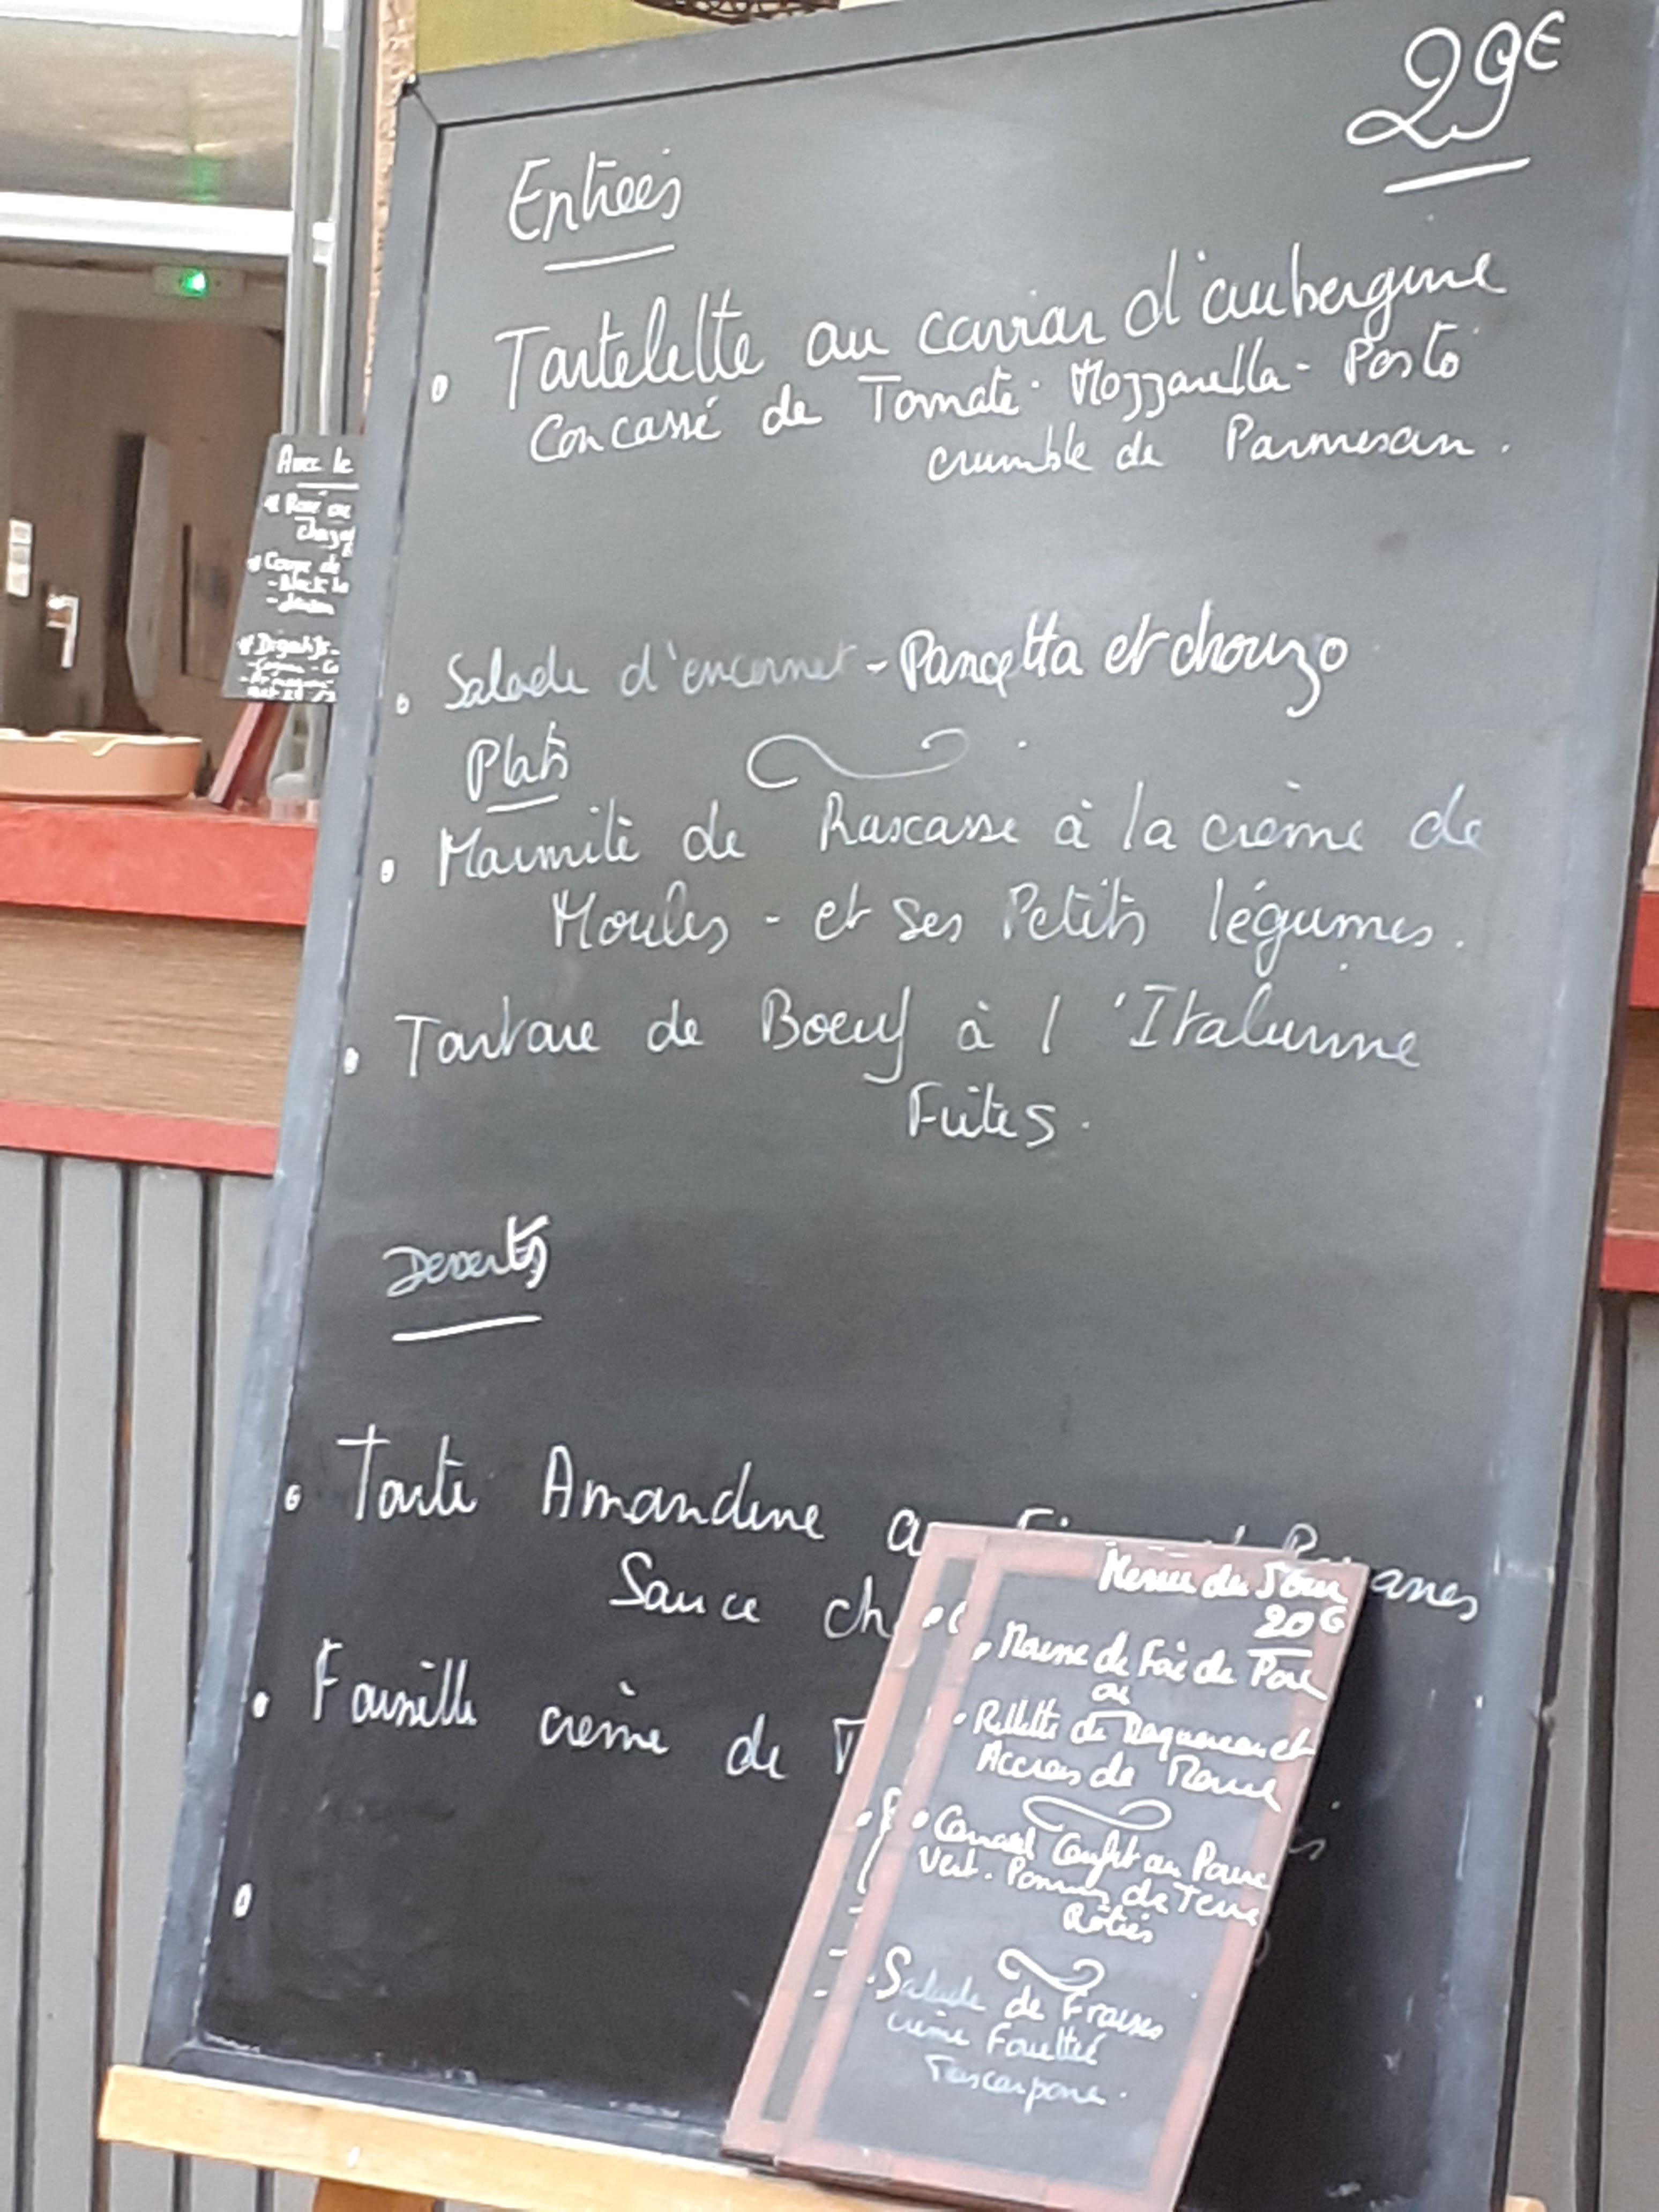 29€
Entrées
Tartelette au caviar d'aubergine
Concassé de Tomate - Mozzarella - Pesto
crumble de Parmesan.
Salade d'encornet - Pancetta et chorizo
Plats
Marmite de Rascasse à la crème de
Moules - et ses Petits légumes.
Tartare de Boeuf à l'Italienne
Frites.
Desserts
Tarte Amandine
Sauce
crème de
Menu du Jour
20€
Mousse de Foie de Porc
ou
Rillette de Maquereau et
Accras de Morue
Canard Confit au Poivre
Vert. Pommes de Terre
Rôties
Salade de Fraises
crème Fouettée
Mascarpone.
Avec le
Coupe de
Digestifs